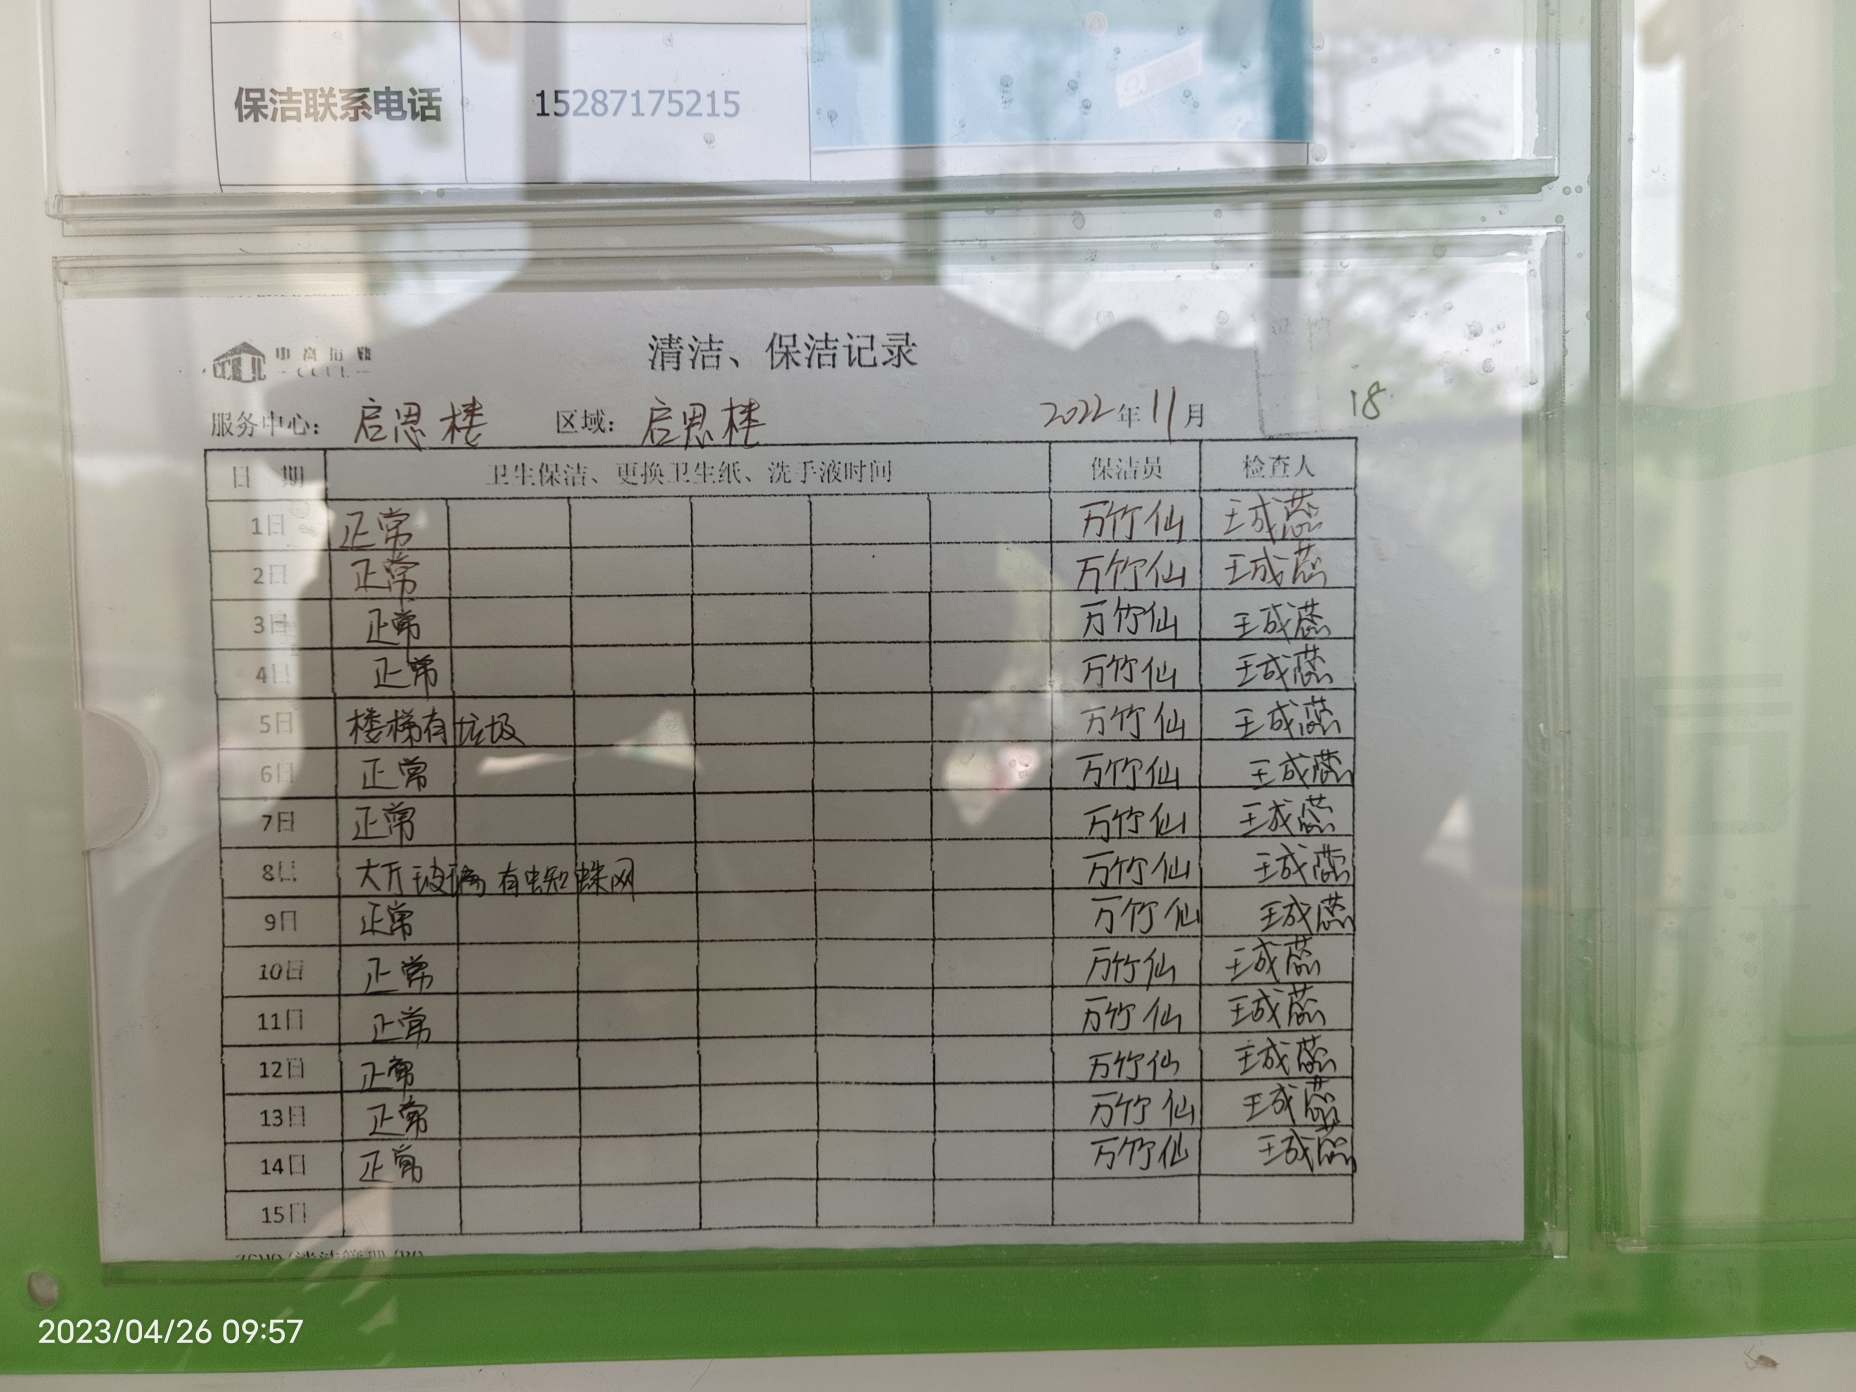 保洁联系电话 15287175215
清洁、保洁记录
服务中心: 启思楼 区域: 启思楼 2022年11月 18
日期 卫生保洁、更换卫生纸、洗手液时间 保洁员 检查人
1日 正常 万竹仙 王成蕊
2日 正常 万竹仙 王成蕊
3日 正常 万竹仙 王成蕊
4日 正常 万竹仙 王成蕊
5日 楼梯有垃圾 万竹仙 王成蕊
6日 正常 万竹仙 王成蕊
7日 正常 万竹仙 王成蕊
8日 大厅玻璃有蜘蛛网 万竹仙 王成蕊
9日 正常 万竹仙 王成蕊
10日 正常 万竹仙 王成蕊
11日 正常 万竹仙 王成蕊
12日 正常 万竹仙 王成蕊
13日 正常 万竹仙 王成蕊
14日 正常 万竹仙 王成蕊
15日
2023/04/26 09:57